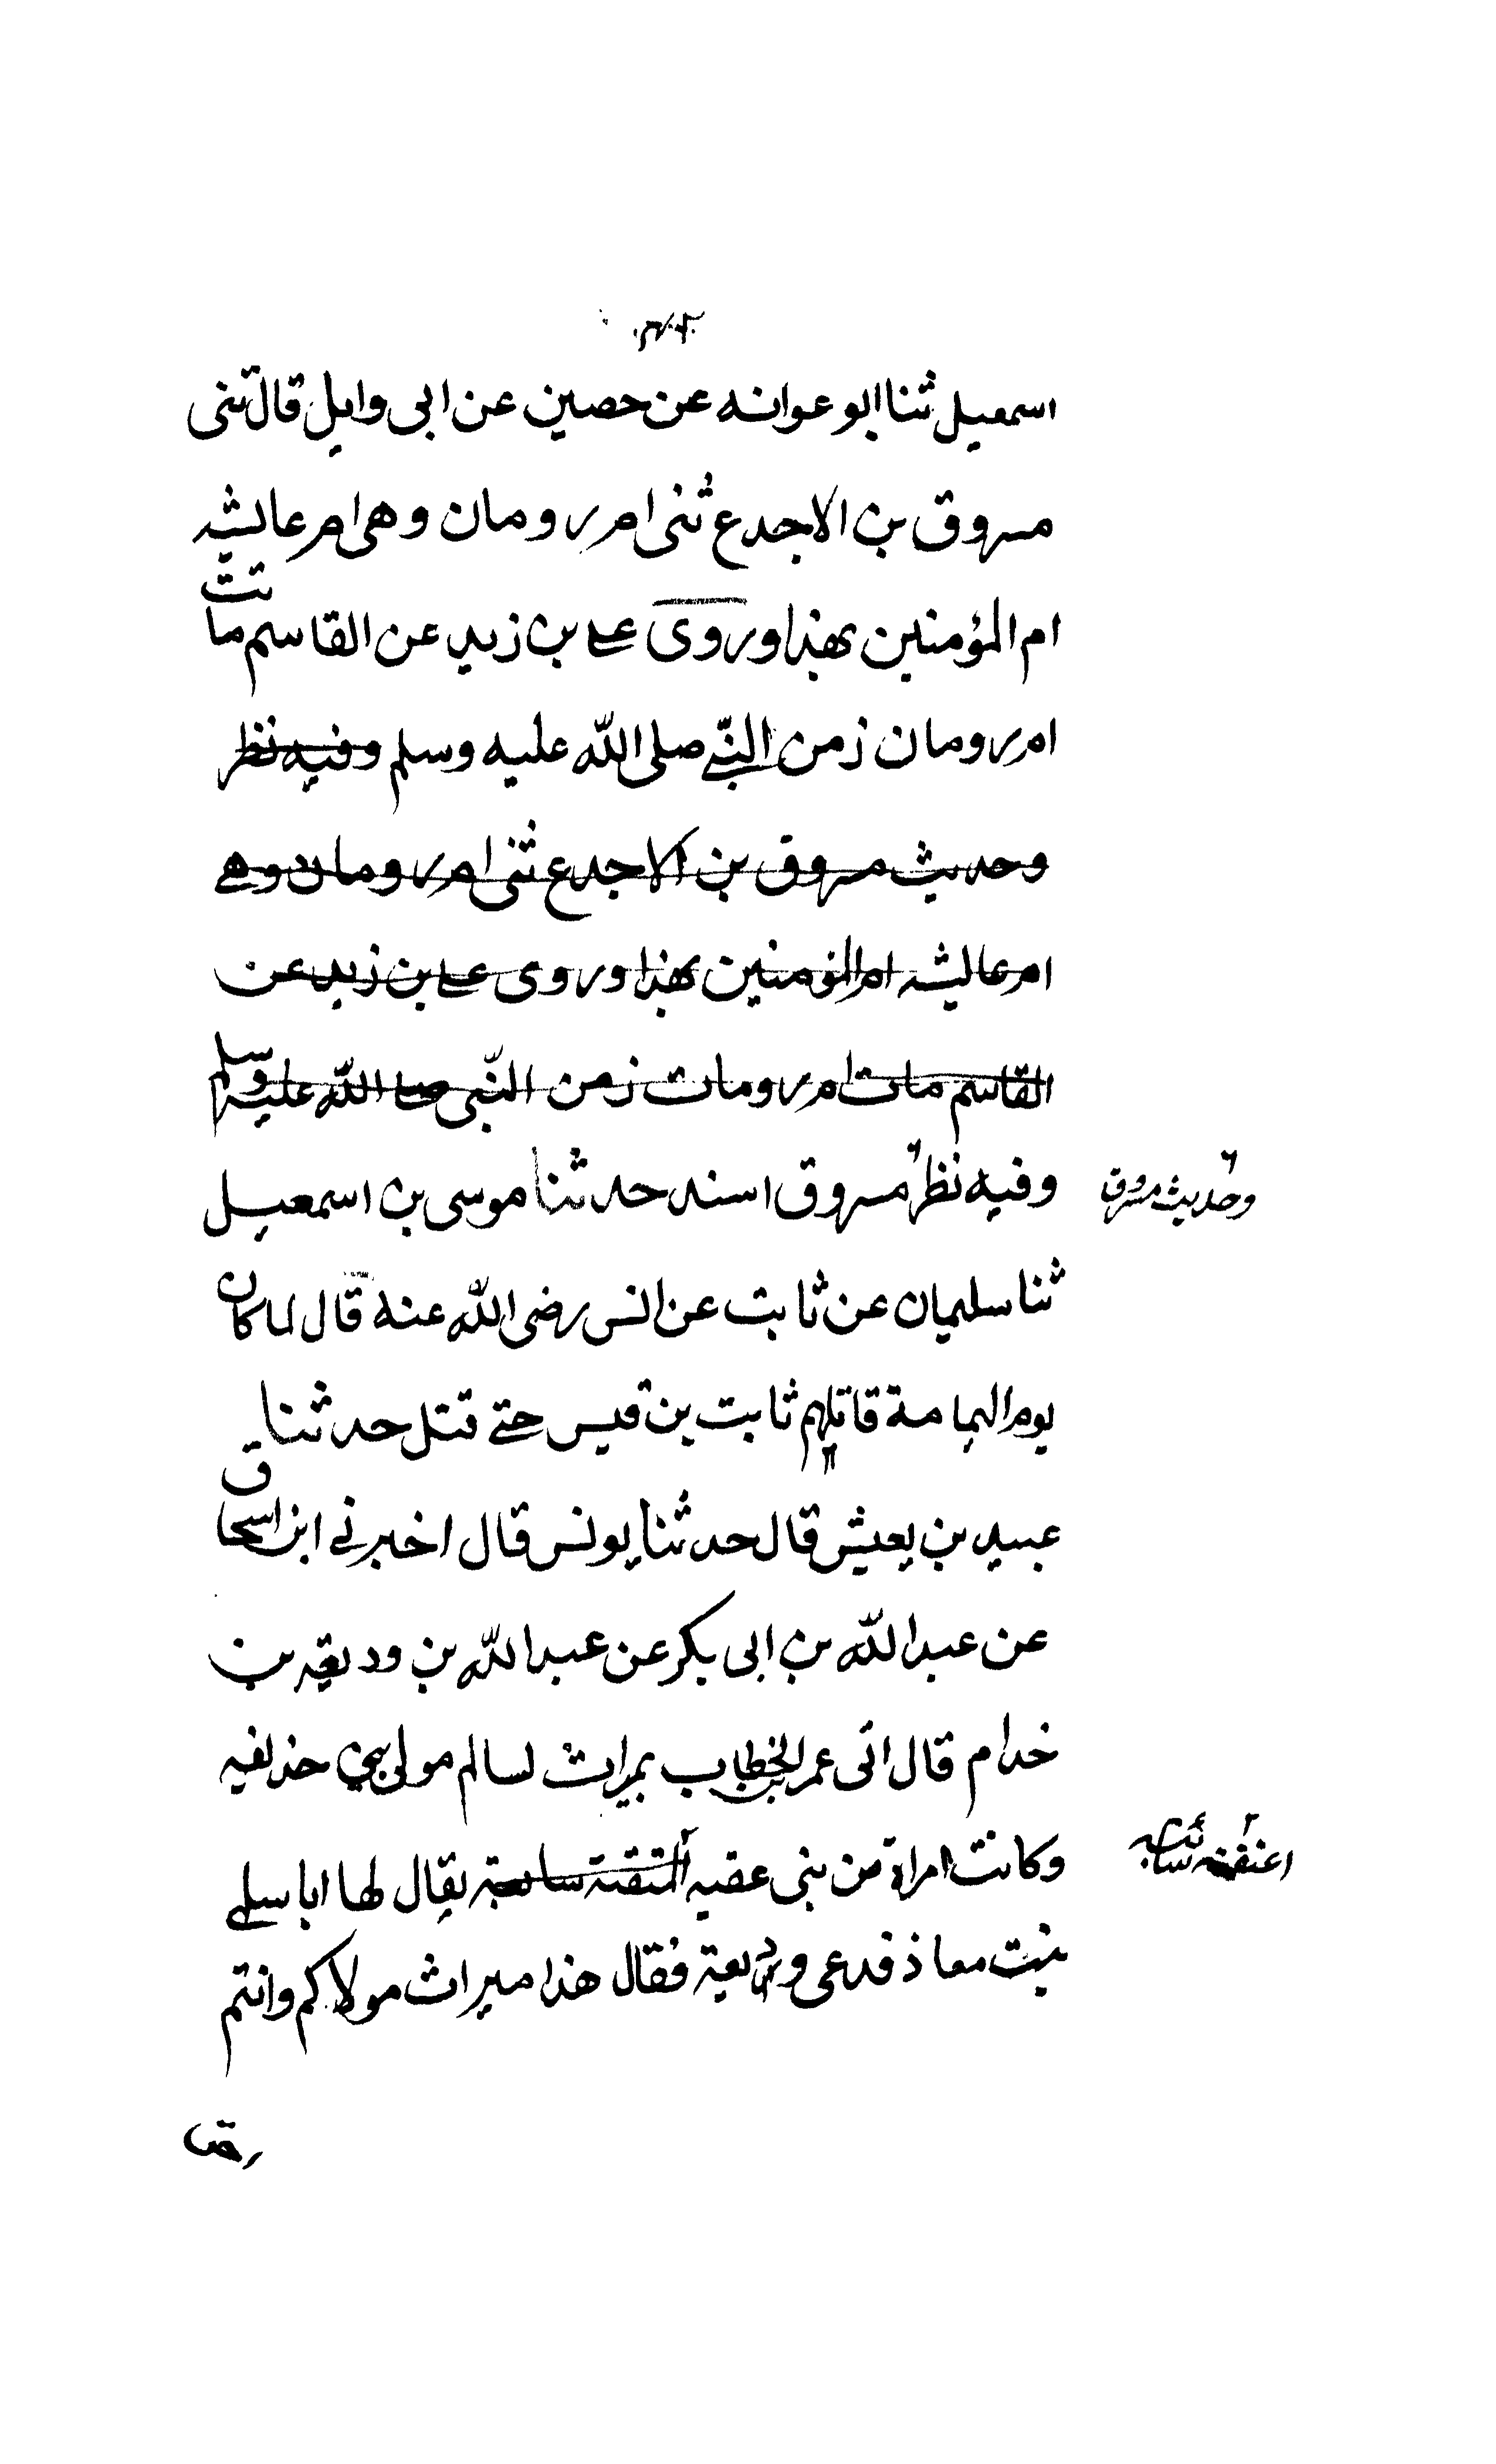 اسمعيل ثنا ابو عوانه عن حصين عن ابى وايل قال ثنى
مسروق بن الاجدع ثنى ام رومان وهى ام عايشه
ام المؤمنين بهذا وروى على بن زيد عن القاسم ماتت
ام رومان زمن النبى صلى الله عليه وسلم وفيه نظر
وحديث مسروق بن الاجدع ثنى ام رومان وهى
ام عايشه ام المؤمنين بهذا وروى على بن زيد عن
القاسم مات ام رومات زمن النبى صلى الله عليه وسلم
وفيه نظر مسروق اسند حدثنا موسى بن اسمعيل
وحديث مسروق
ثنا سليمان عن ثابت عن انس رضى الله عنه قال لما كان
يوم اليمامة قاتلهم ثابت بن قيس حتى قتل حدثنا
عبيد بن يعيش قال حدثنا يونس قال اخبرنى ابن اسحاق
عن عبد الله بن ابى بكر عن عبد الله بن وديعه بن
خدام قال اتى عمر بن الخطاب بميراث لسالم مولى ابى حذيفه
وكانت امراة من بنى عقبه المتقنة سايبة يقال لها اباسلمى
اعتقته سائبه
بنت معاذ فدعى وديعة فقال هذا ميراث مولاكم وانتم